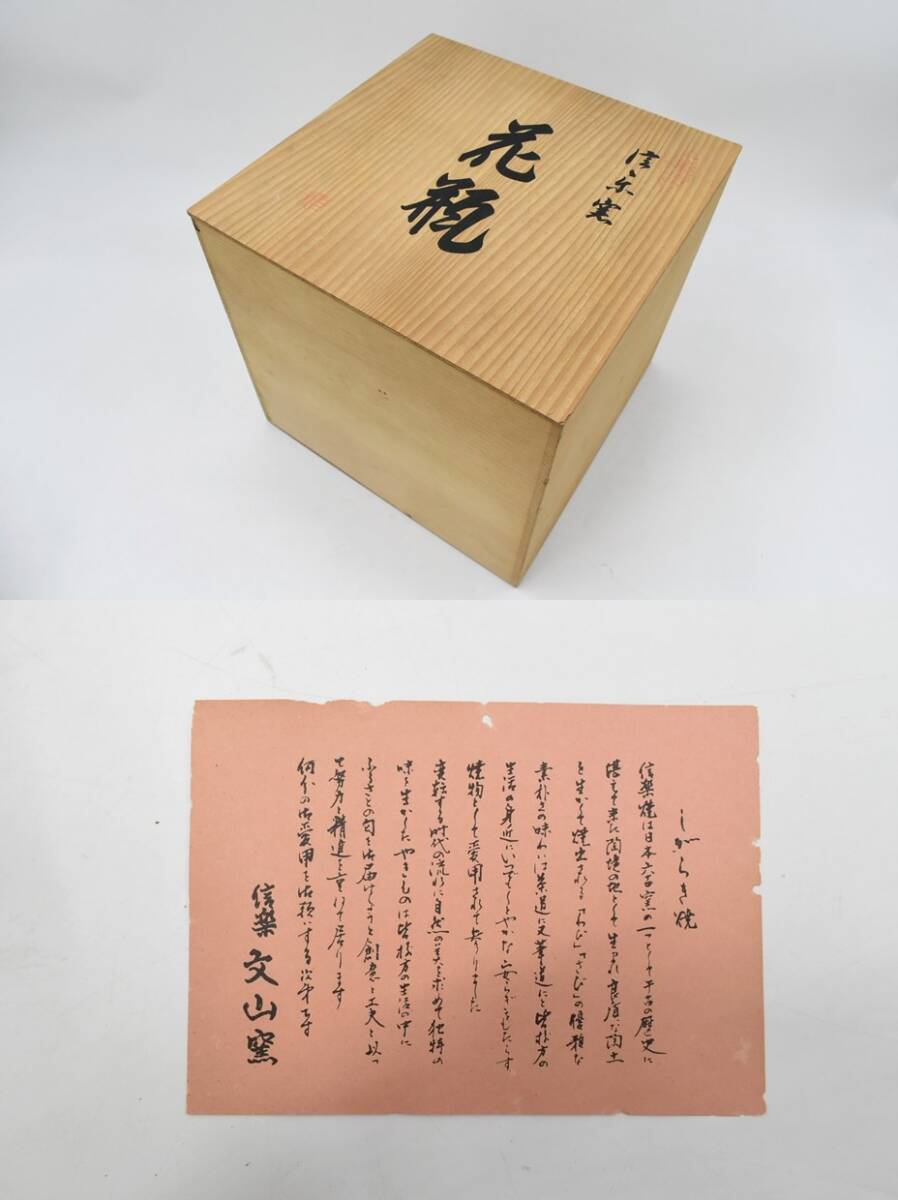 信楽窯
花瓶
しがらき焼
信楽焼は日本六古窯の一つとして千古の歴史に
堪えて来た陶境の地として生れ良質な陶土
を生かして焼出される「わび」「さび」の優雅な
素朴さの味わいは茶道に又華道にと皆様方の
生活の身近にいつでもしらやかな安らぎをもたらす
焼物として愛用されて参りました
変転する時代の流れに自然の美を求めて独特の
味を生かしたやきものは皆様方の生活の中に
ふるさとの匂をお届けしようと創意と工夫を以っ
て努力と精進を重ねて居ります
何分の御愛用を御願いする次第です
信楽 文山窯